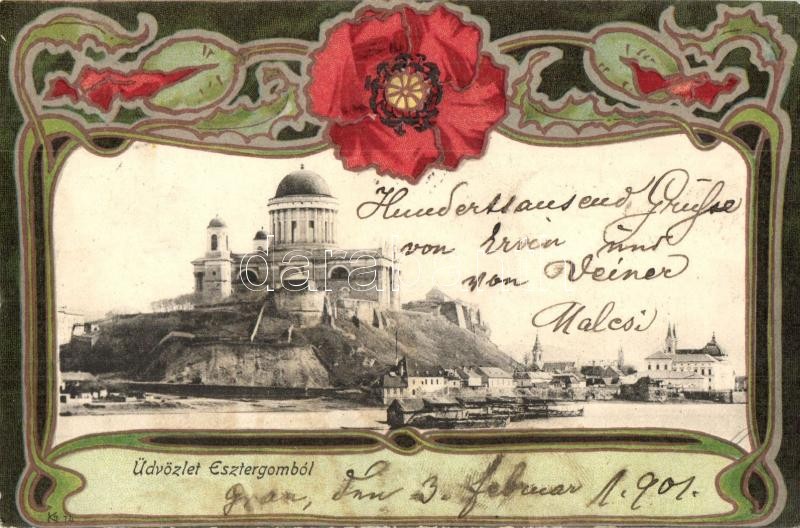 Hunderttausend Grüsse
von Ervin und
von Deiner
Malcsi
darabanth
Üdvözlet Esztergomból
Gran, den 3. februar 1.901.